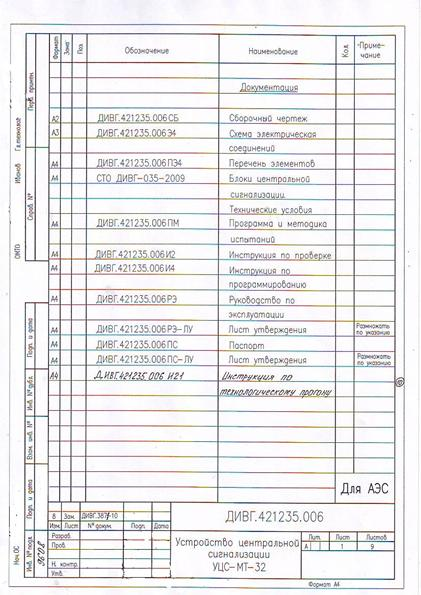 Формат
Зона
Поз.
Обозначение
Наименование
Кол.
Приме-
чание
Документация
А2 ДИВГ.421235.006 СБ Сборочный чертеж
А3 ДИВГ.421235.006 Э4 Схема электрическая
соединений
А4 ДИВГ.421235.006 ПЭ4 Перечень элементов
А4 СТО ДИВГ-035-2009 Блоки центральной
сигнализации.
Технические условия
А4 ДИВГ.421235.006 ПМ Программа и методика
испытаний
А4 ДИВГ.421235.006 И2 Инструкция по проверке
А4 ДИВГ.421235.006 И4 Инструкция по
программированию
А4 ДИВГ.421235.006 РЭ Руководство по
эксплуатации
А4 ДИВГ.421235.006 РЭ-ЛУ Лист утверждения Размножать
по указанию
А4 ДИВГ.421235.006 ПС Паспорт
А4 ДИВГ.421235.006 ПС-ЛУ Лист утверждения Размножать
по указанию
А4 ДИВГ.421235.006 И21 Инструкция по
технологическому прогону
Для АЭС
Перв. примен.
Справ. №
Подп. и дата
Инв. № дубл.
Взам. инв. №
Подп. и дата
Инв. № подл.
Гл.технолог
Иванов
ОМТО
Нач.ОС
8 Зам. ДИВГ.387-10
Изм. Лист № докум. Подп. Дата
Разраб.
Пров.
Н. контр.
Утв.
ДИВГ.421235.006
Устройство центральной
сигнализации
УЦС-МТ-32
Лит. Лист Листов
А 1 9
Формат А4